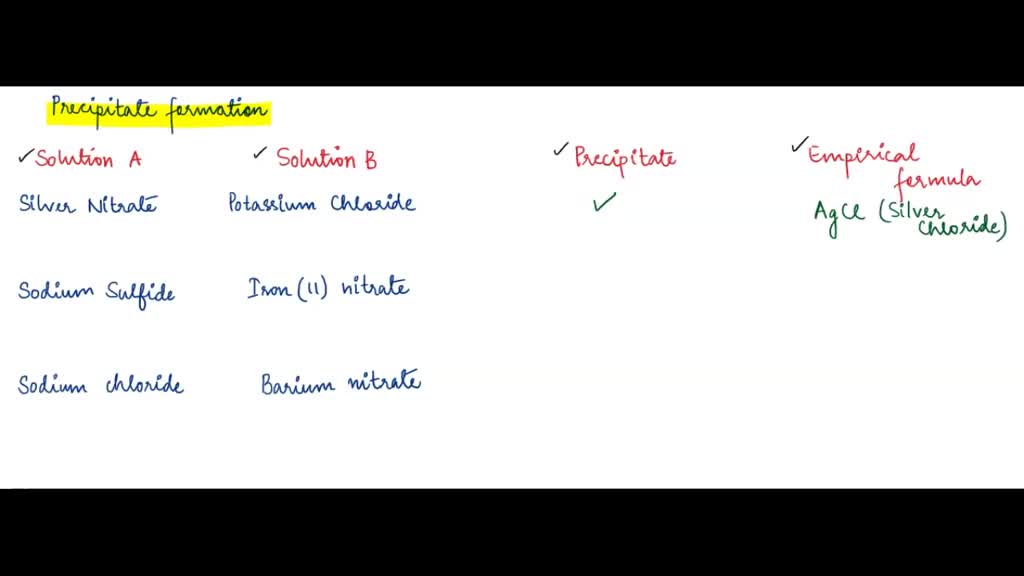 Precipitate formation
✓ Solution A ✓ Solution B ✓ Precipitate ✓ Empirical formula
Silver Nitrate Potassium Chloride ✓ AgCl (Silver Chloride)
Sodium Sulfide Iron (11) nitrate
Sodium chloride Barium nitrate